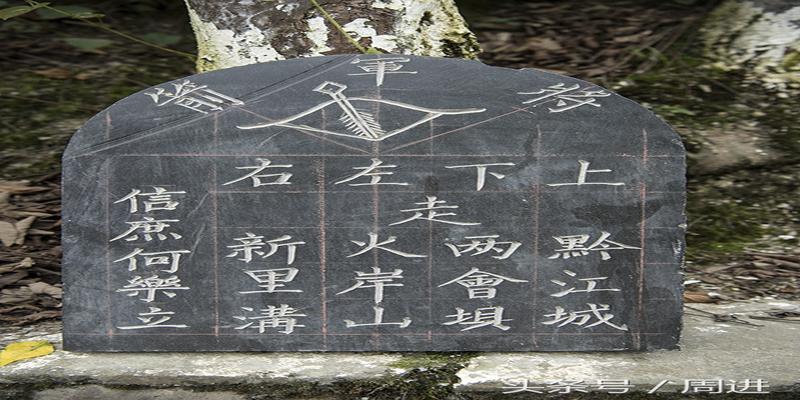 将軍箭
上黔江城
下两會垻
走
左火岸山
右新里溝
信庶何樂立
头条号 / 周进